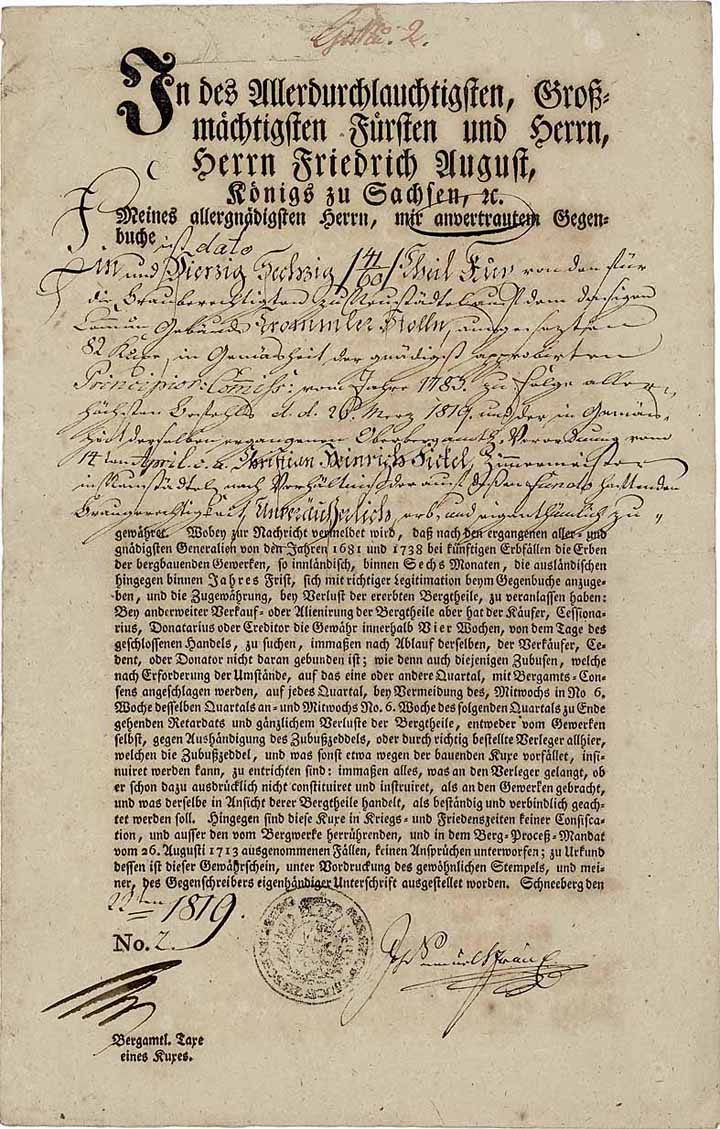 In des Allerdurchlauchtigsten, Groß=
mächtigsten Fürsten und Herrn,
Herrn Friedrich August,
Königs zu Sachsen, ꝛc.
Meines allergnädigsten Herrn, mir anvertrautem Gegen-
buche ist dato
Ein und Vierzig Sechzig /41/60/ Theil Kux von den für
die Brauberechtigten zu Neustädtel auf dem dasigen
Commun Gebäude Trommler Stolln, ausgesetzten
82 Kuxe, in Gemäsheit der gnädigst approbirten
Principior: Commiss: vom Jahre 1783. zu folge aller-
höchsten Befehls d. d. 26 Merz 1819. und der in Gemäs-
heit derselben ergangenen Oberbergamts Verordnung vom
14ten April c. a. Christian Heinrich Fickel, Zimmermeister
in Neustädtel, nach Verhältnis der auf deßen haftenden
Braugerechtigkeit, Unveräußerlich, erb- und eigenthümlich zu-
gewähret. Wobey zur Nachricht vermeldet wird, daß nach den ergangenen aller- und
gnädigsten Generalien von den Jahren 1681 und 1738 bei künftigen Erbfällen die Erben
der bergbauenden Gewerken, so innländisch, binnen Sechs Monaten, die ausländischen
hingegen binnen Jahres Frist, sich mit richtiger Legitimation beym Gegenbuche anzuge-
ben, und die Zugewährung, bey Verlust der ererbten Bergtheile, zu veranlassen haben:
Bey anderweiter Verkauf- oder Alienirung der Bergtheile aber hat der Käufer, Cessiona-
rius, Donatarius oder Creditor die Gewähr innerhalb Vier Wochen, von dem Tage des
geschlossenen Handels, zu suchen, immaßen nach Ablauf derselben, der Verkäufer, Ce-
dent, oder Donator nicht daran gebunden ist; wie denn auch diejenigen Zubusen, welche
nach Erforderung der Umstände, auf das eine oder andere Quartal, mit Bergamts-Con-
sens angeschlagen werden, auf jedes Quartal, bey Vermeidung des, Mitwochs in No 6.
Woche desselben Quartals an- und Mitwochs No. 6. Woche des folgenden Quartals zu Ende
gehenden Retardats und gänzlichem Verluste der Bergtheile, entweder vom Gewerken
selbst, gegen Aushändigung des Zubußzeddels, oder durch richtig bestellte Verleger allhier,
welchen die Zubußzeddel, und was sonst etwa wegen der bauenden Kuxe vorfället, insi-
nuiret werden kann, zu entrichten sind: immaßen alles, was an den Verleger gelangt, ob
er schon dazu ausdrücklich nicht constituiret und instruiret, als an den Gewerken gebracht,
und was derselbe in Ansicht derer Bergtheile handelt, als beständig und verbindlich geach-
tet werden soll. Hingegen sind diese Kuxe in Kriegs- und Friedenszeiten keiner Confisca-
tion, und ausser den vom Bergwerke herrührenden, und in dem Berg-Proceß-Mandat
vom 26. Augusti 1713 ausgenommenen Fällen, keinen Ansprüchen unterworfen; zu Urkund
dessen ist dieser Gewährschein, unter Vordruckung des gewöhnlichen Stempels, und mei-
ner, des Gegenschreibers eigenhändiger Unterschrift ausgestellet worden. Schneeberg den
1819.
No. 2.
Bergamtl. Taxe
eines Kuxes.